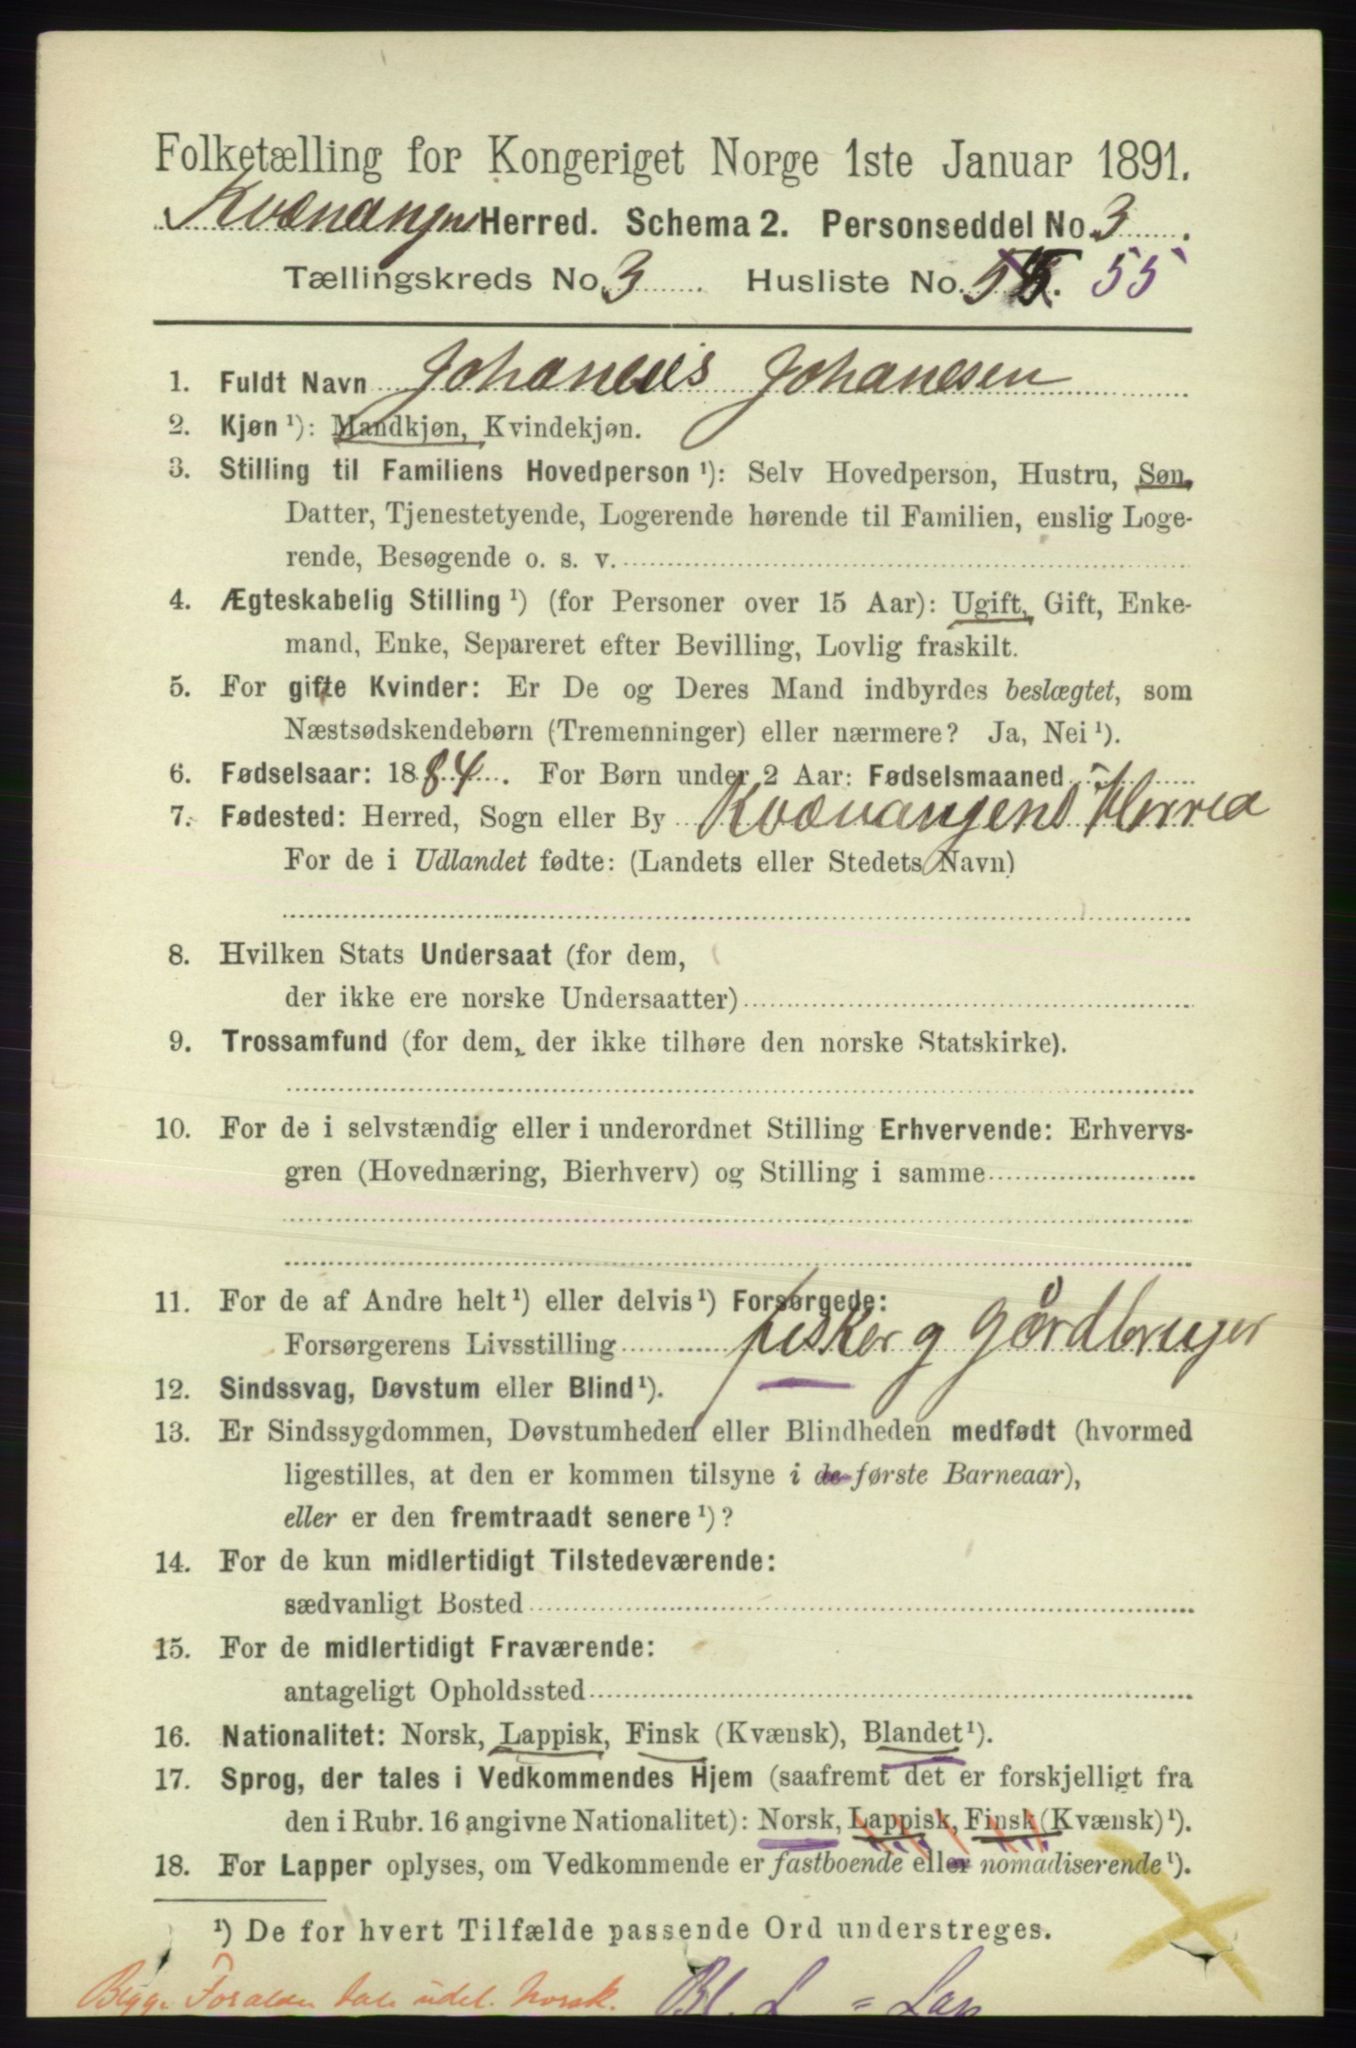 Folketælling for Kongeriget Norge 1ste Januar 1891.
Kvænangen Herred. Schema 2. Personseddel No. 3.
Tællingskreds No. 3 Husliste No. 55
1. Fuldt Navn Johannes Johanesen
2. Kjøn ¹): Mandkjøn, Kvindekjøn.
3. Stilling til Familiens Hovedperson ¹): Selv Hovedperson, Hustru, Søn,
Datter, Tjenestetyende, Logerende hørende til Familien, enslig Loge-
rende, Besøgende o. s. v.
4. Ægteskabelig Stilling ¹) (for Personer over 15 Aar): Ugift, Gift, Enke-
mand, Enke, Separeret efter Bevilling, Lovlig fraskilt.
5. For gifte Kvinder: Er De og Deres Mand indbyrdes beslægtet, som
Næstsødskendebørn (Tremenninger) eller nærmere? Ja, Nei ¹).
6. Fødselsaar: 1884. For Børn under 2 Aar: Fødselsmaaned
7. Fødested: Herred, Sogn eller By Kvænangens Herred
For de i Udlandet fødte: (Landets eller Stedets Navn)
8. Hvilken Stats Undersaat (for dem,
der ikke ere norske Undersaatter)
9. Trossamfund (for dem, der ikke tilhøre den norske Statskirke).
10. For de i selvstændig eller i underordnet Stilling Erhvervende: Erhvervs-
gren (Hovednæring, Bierhverv) og Stilling i samme
11. For de af Andre helt ¹) eller delvis ¹) Forsørgede:
Forsørgerens Livsstilling fisker g gårdbruger
12. Sindssvag, Døvstum eller Blind ¹).
13. Er Sindssygdommen, Døvstumheden eller Blindheden medfødt (hvormed
ligestilles, at den er kommen tilsyne i de første Barneaar),
eller er den fremtraadt senere ¹)?
14. For de kun midlertidigt Tilstedeværende:
sædvanligt Bosted
15. For de midlertidigt Fraværende:
antageligt Opholdssted
16. Nationalitet: Norsk, Lappisk, Finsk (Kvænsk), Blandet ¹).
17. Sprog, der tales i Vedkommendes Hjem (saafremt det er forskjelligt fra
den i Rubr. 16 angivne Nationalitet): Norsk, Lappisk, Finsk (Kvænsk) ¹).
18. For Lapper oplyses, om Vedkommende er fastboende eller nomadiserende ¹).
¹) De for hvert Tilfælde passende Ord understreges.
tale udel. Norsk. Bl. L = Lap